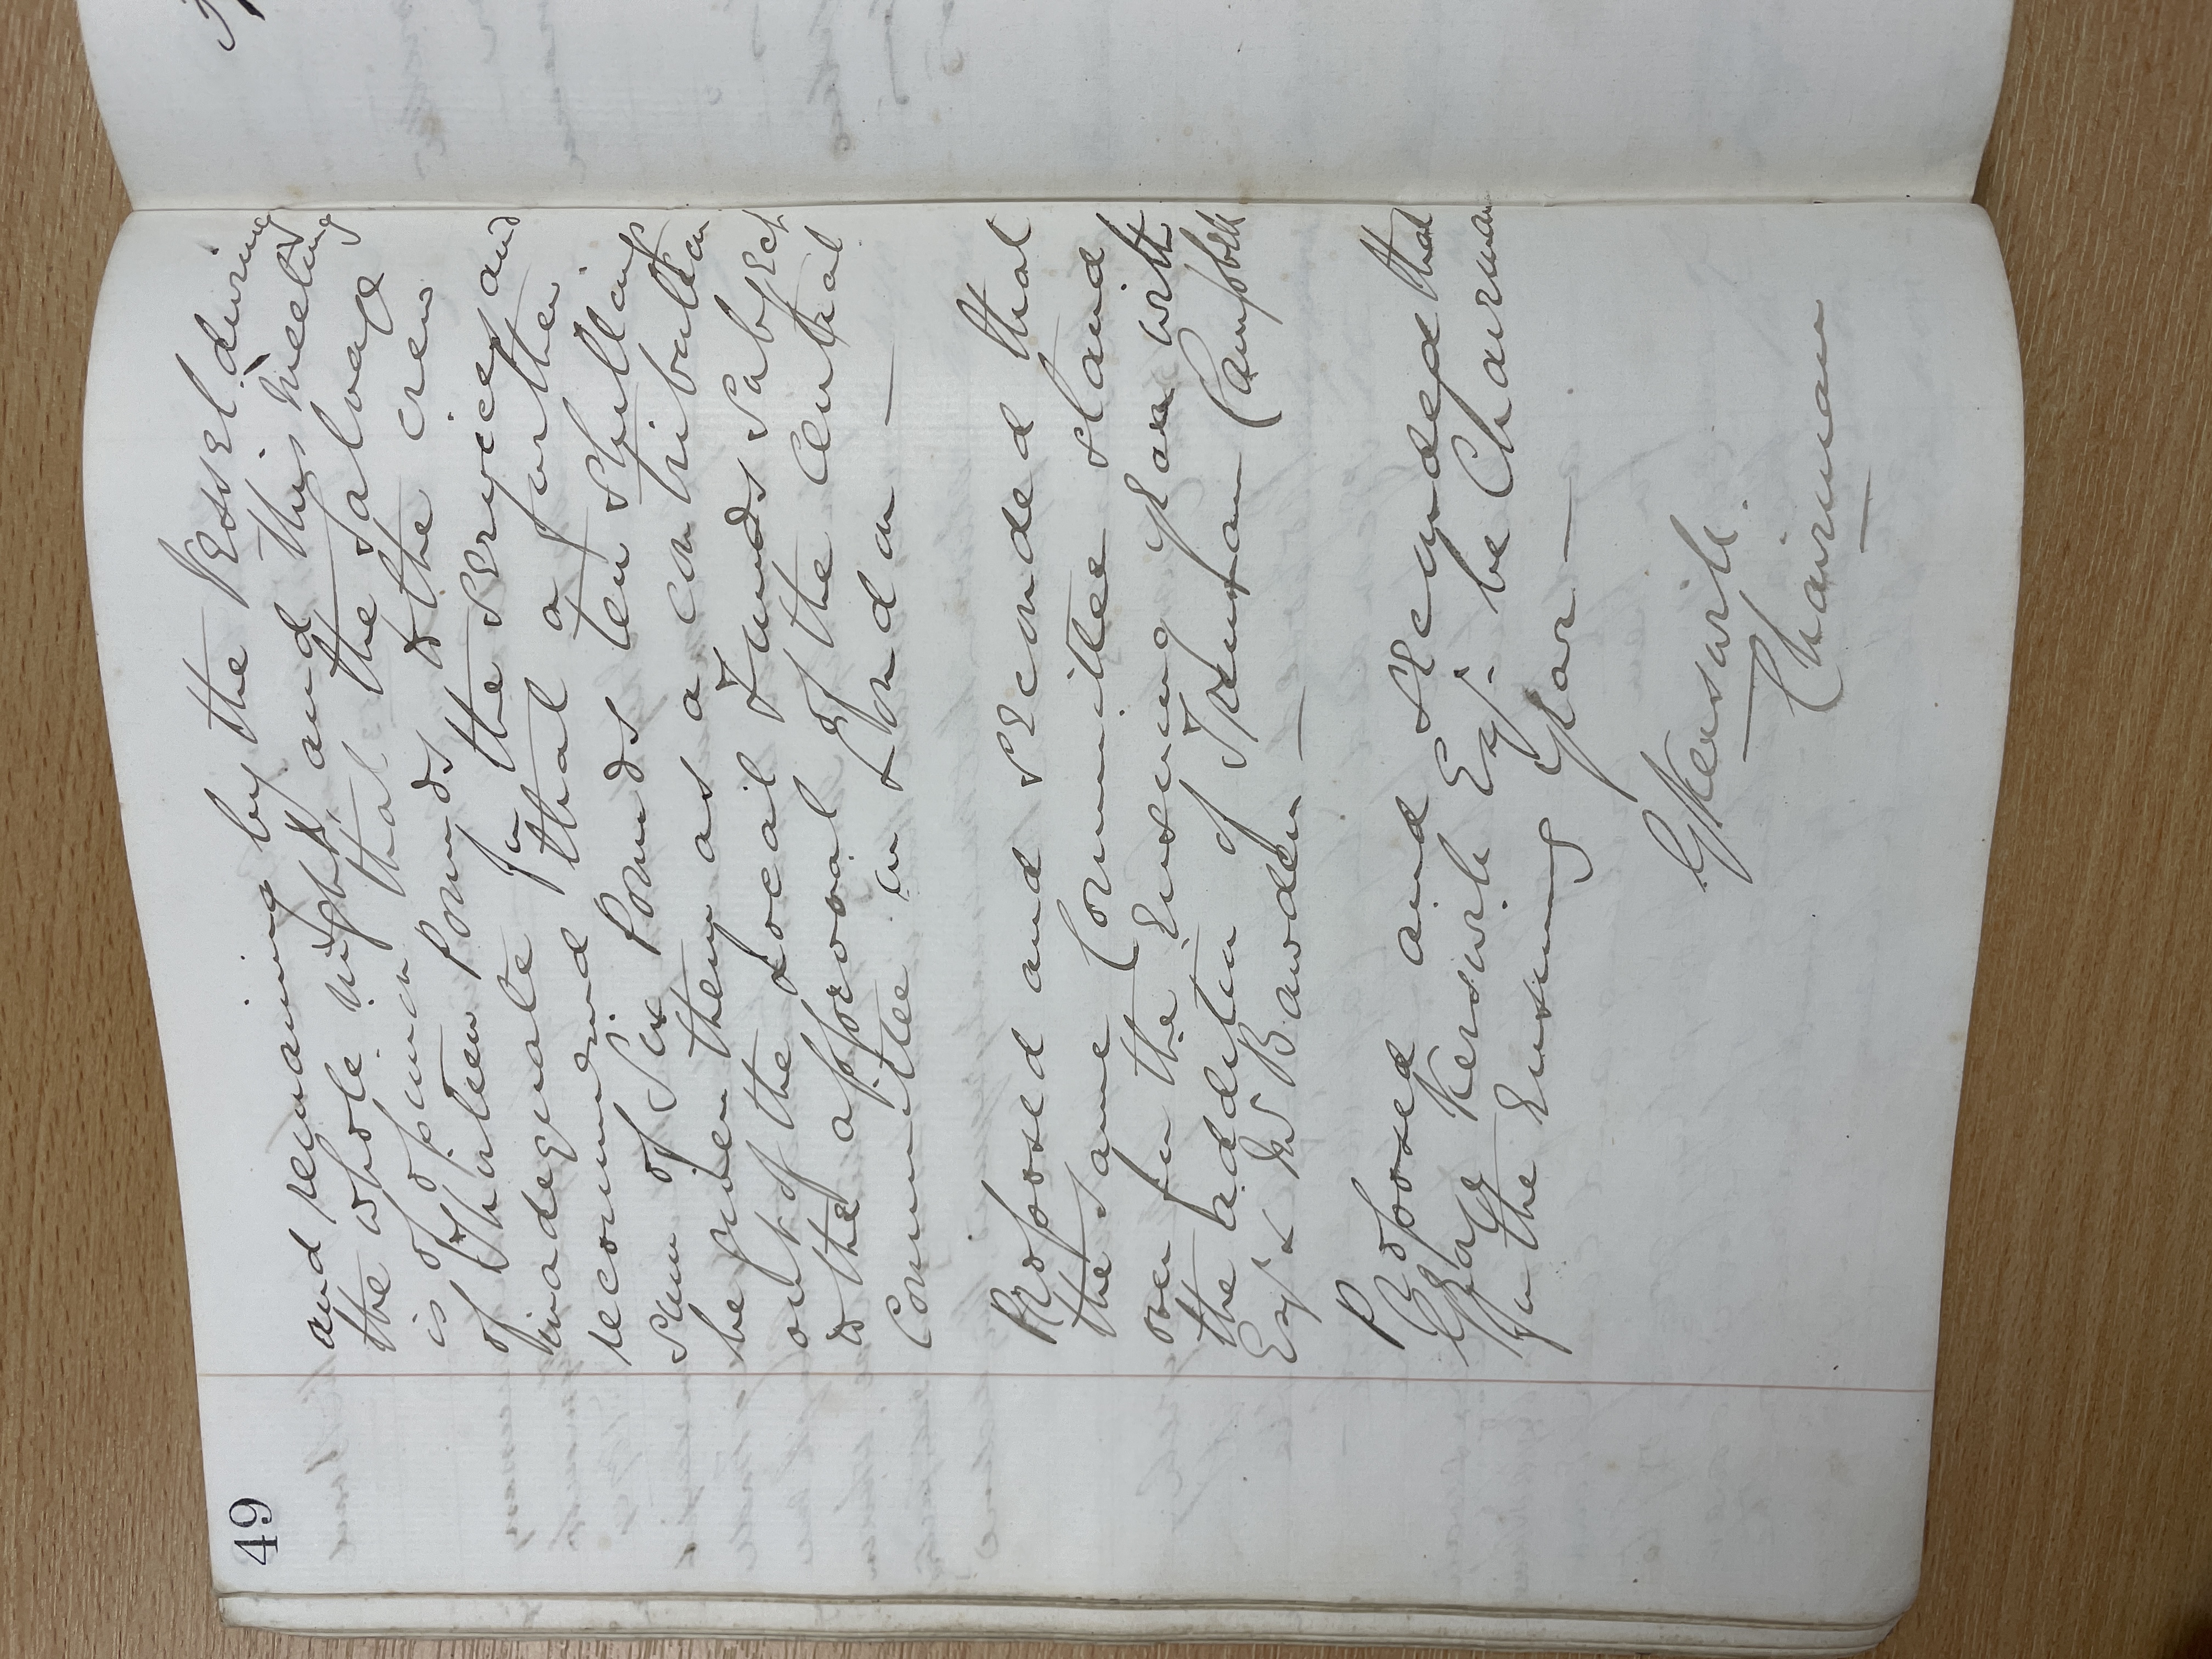 49
and remaining by the Vessel during
the whole night, and this meeting
is of opinion that the salvage
of thirteen Pounds to the crew
inadequate for the services and
recommend that a further
sum of Six Pounds ten shillings
be given them as a contribution
out of the Local Funds Subject
to the approval of the Central
Committee in London —
Proposed and Seconded that
the same Committee stand
over for the Ensuing year with
the addition of Trenham Campbell
Esq. & W Bawden —
Proposed and Seconded that
George Kerswill Esq. be Chairman
for the Ensuing year —
G Kerswill
Chairman